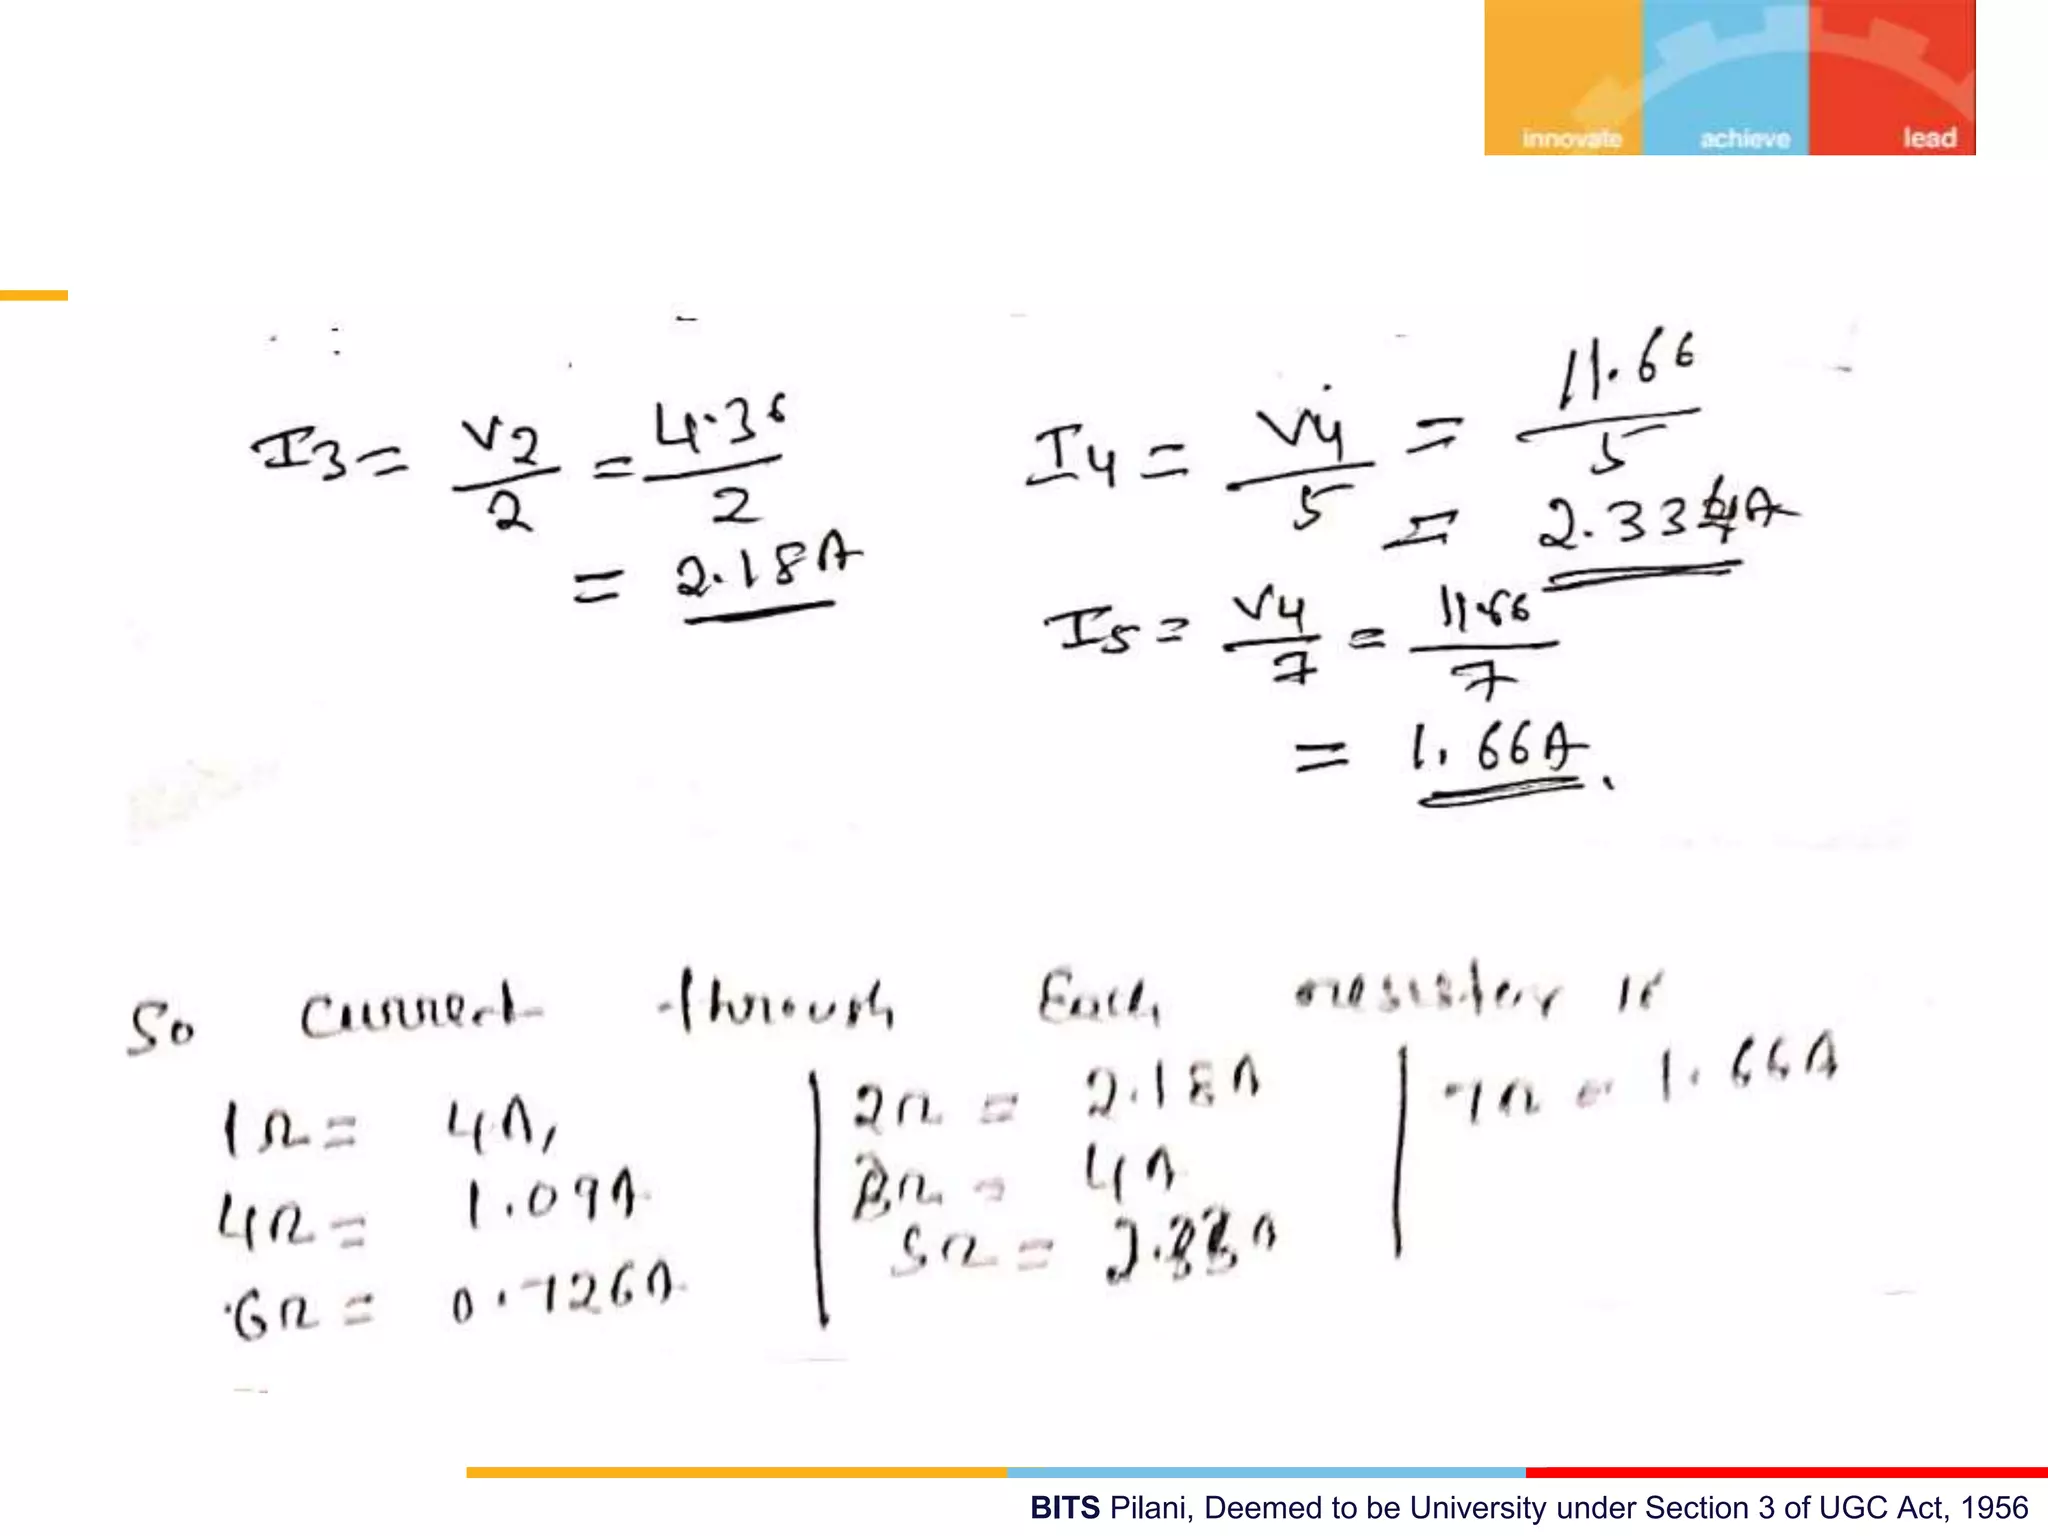 innovate achieve lead
I3 = V2/2 = 4.36/2
= 2.18A
I4 = V4/5 = 11.66/5
= 2.334A
I5 = V4/7 = 11.66/7
= 1.66A.
So current through Each resistor is
1Ω = 4A,
4Ω = 1.09A
6Ω = 0.726A
2Ω = 2.18A
Ω = 4A
5Ω = 2.33A
7Ω = 1.66A
BITS Pilani, Deemed to be University under Section 3 of UGC Act, 1956